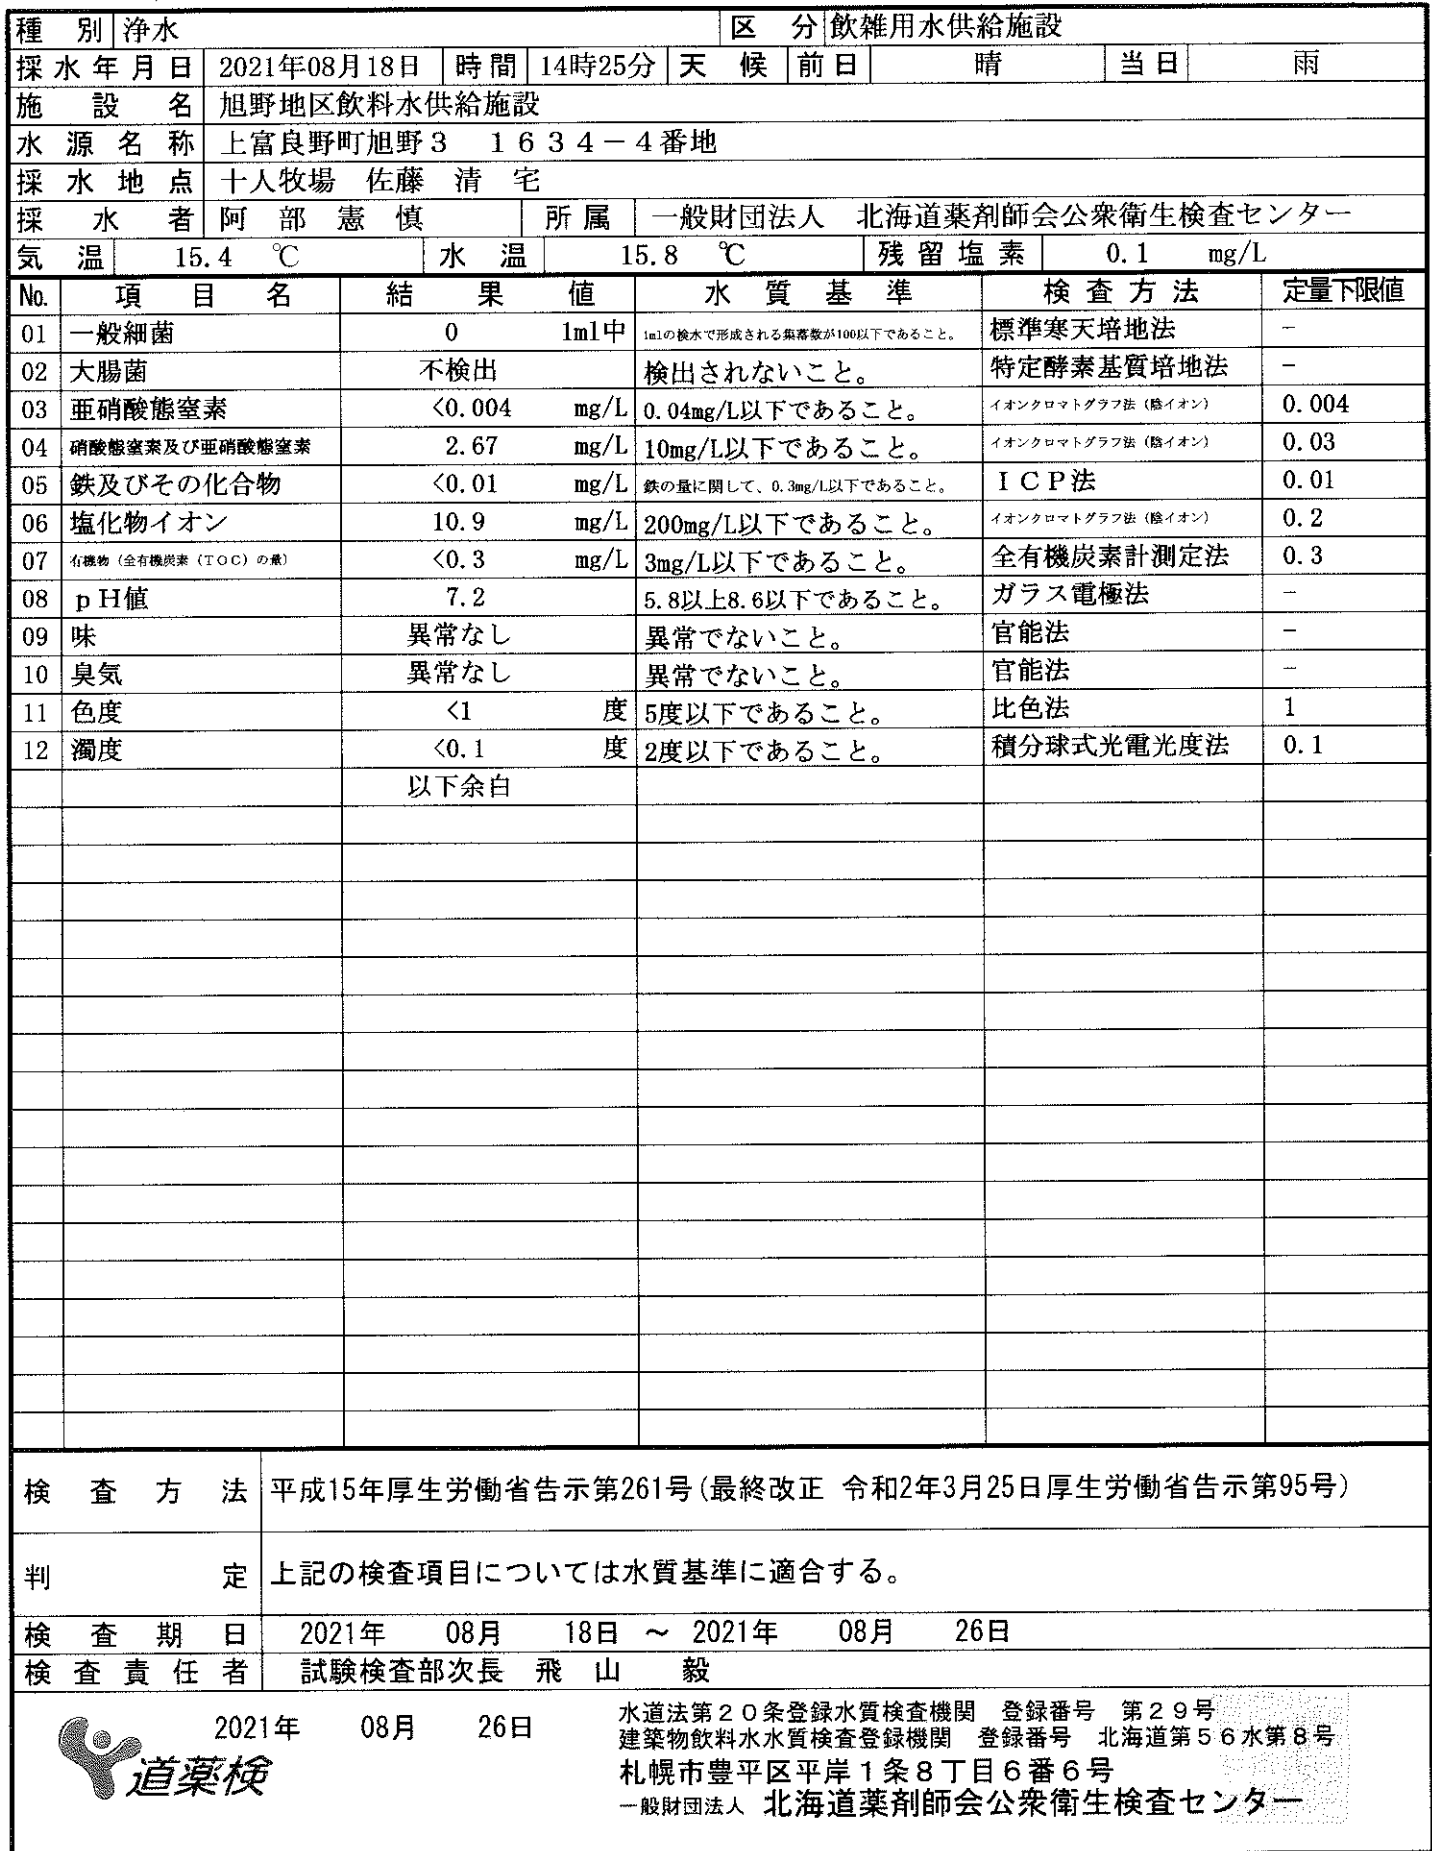 種別 浄水 区分 飲雑用水供給施設
採水年月日 2021年08月18日 時間 14時25分 天候 前日 晴 当日 雨
施設名 旭野地区飲料水供給施設
水源名称 上富良野町旭野3 1634-4番地
採水地点 十人牧場 佐藤 清 宅
採水者 阿部憲慎 所属 一般財団法人 北海道薬剤師会公衆衛生検査センター
気温 15.4 ℃ 水温 15.8 ℃ 残留塩素 0.1 mg/L
No. 項目名 結果値 水質基準 検査方法 定量下限値
01 一般細菌 0 1ml中 1mlの検水で形成される集落数が100以下であること。 標準寒天培地法 -
02 大腸菌 不検出 検出されないこと。 特定酵素基質培地法 -
03 亜硝酸態窒素 <0.004 mg/L 0.04mg/L以下であること。 イオンクロマトグラフ法(陰イオン) 0.004
04 硝酸態窒素及び亜硝酸態窒素 2.67 mg/L 10mg/L以下であること。 イオンクロマトグラフ法(陰イオン) 0.03
05 鉄及びその化合物 <0.01 mg/L 鉄の量に関して、0.3mg/L以下であること。 ICP法 0.01
06 塩化物イオン 10.9 mg/L 200mg/L以下であること。 イオンクロマトグラフ法(陰イオン) 0.2
07 有機物(全有機炭素(TOC)の量) <0.3 mg/L 3mg/L以下であること。 全有機炭素計測定法 0.3
08 pH値 7.2 5.8以上8.6以下であること。 ガラス電極法 -
09 味 異常なし 異常でないこと。 官能法 -
10 臭気 異常なし 異常でないこと。 官能法 -
11 色度 <1 度 5度以下であること。 比色法 1
12 濁度 <0.1 度 2度以下であること。 積分球式光電光度法 0.1
以下余白
検査方法 平成15年厚生労働省告示第261号(最終改正 令和2年3月25日厚生労働省告示第95号)
判定 上記の検査項目については水質基準に適合する。
検査期日 2021年 08月 18日 ~ 2021年 08月 26日
検査責任者 試験検査部次長 飛山 毅
2021年 08月 26日
道薬検
水道法第20条登録水質検査機関 登録番号 第29号
建築物飲料水水質検査登録機関 登録番号 北海道第56水第8号
札幌市豊平区平岸1条8丁目6番6号
一般財団法人 北海道薬剤師会公衆衛生検査センター